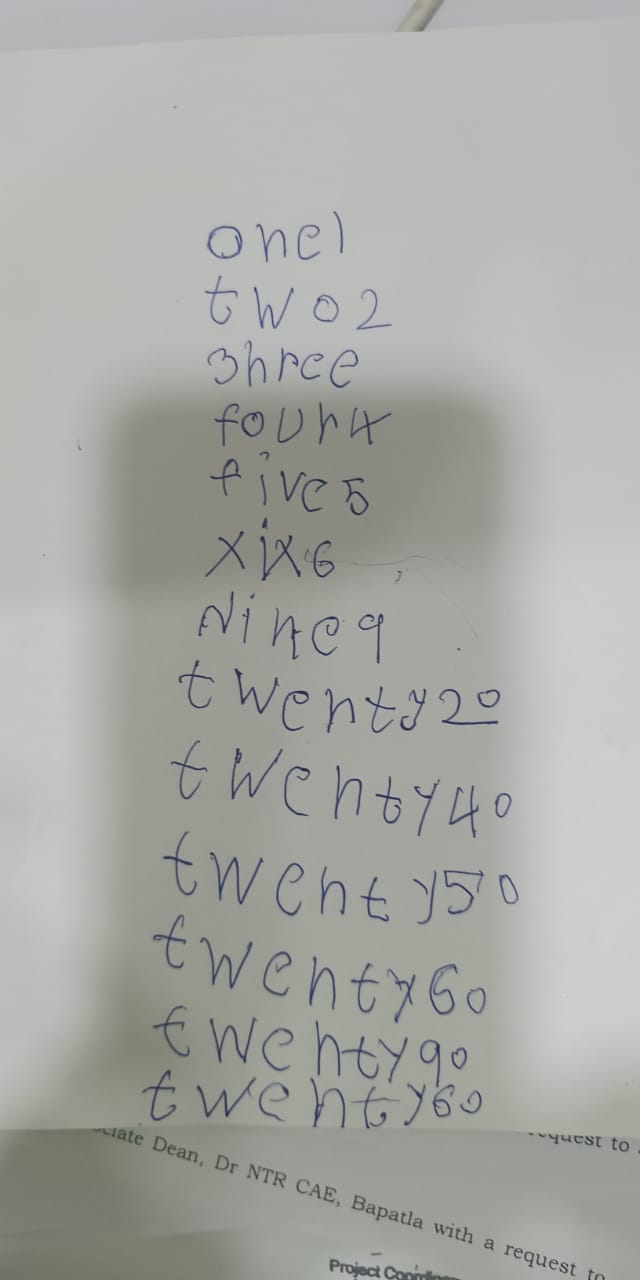 one1
two2
3hree
four4
five5
xix6
Nine9
twenty20
twenty40
twenty50
twenty60
twenty90
twenty60
request to
ciate Dean, Dr NTR CAE, Bapatla with a request to
Project